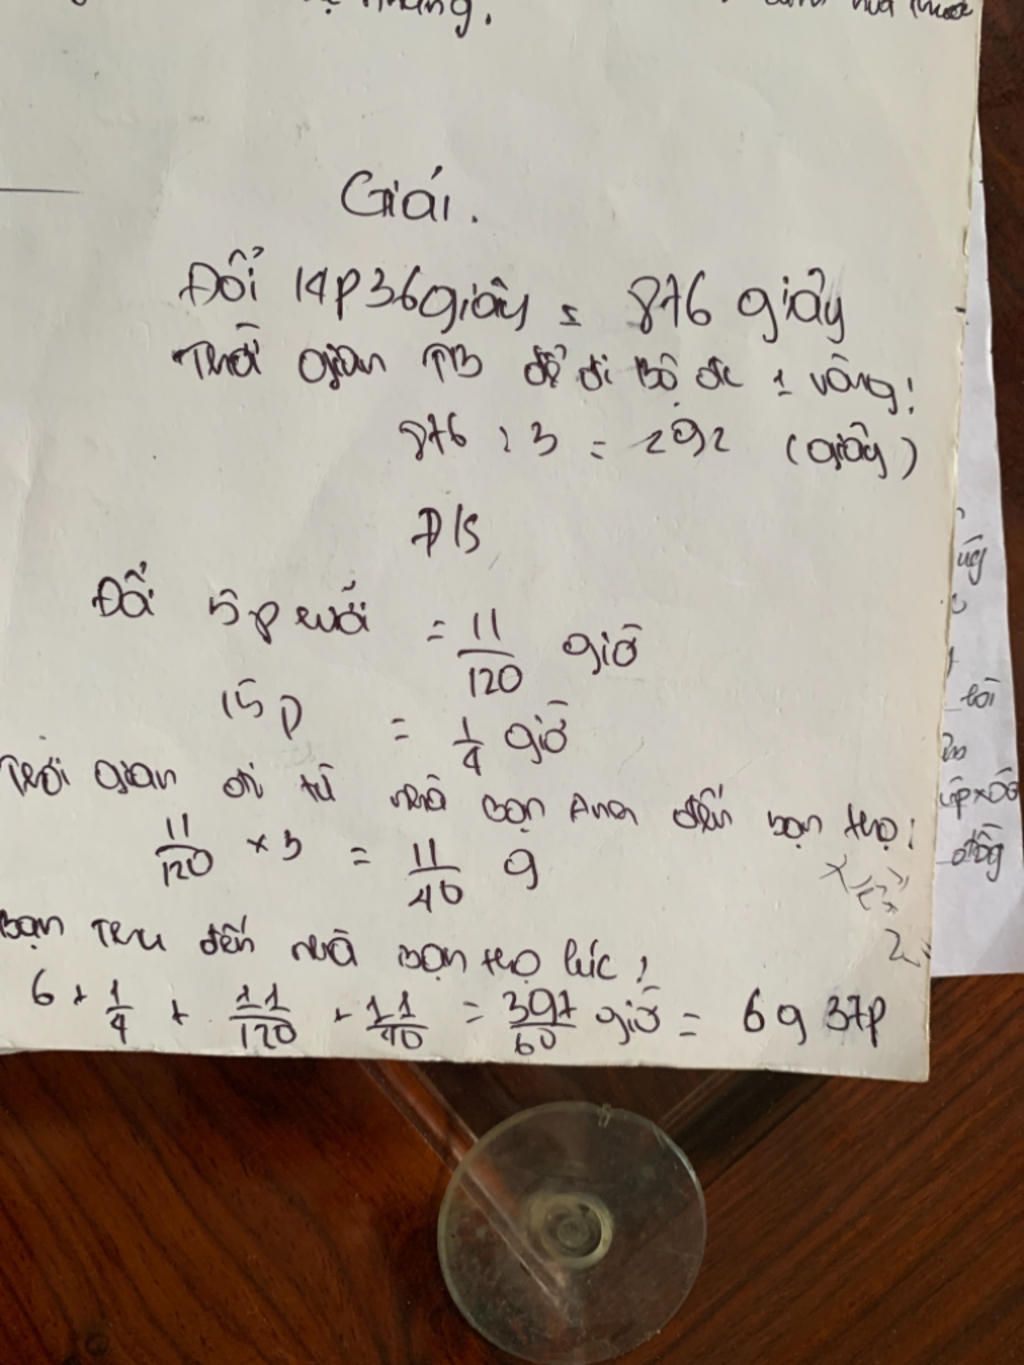 Giải.
Đổi 14p36giây = 876 giây
Thời gian TB để đi Bộ đc 1 vòng:
876 : 3 = 292 (giây)
Đ/S
Đổi 5p rưỡi = 11/120 giờ
15p = 1/4 giờ
Thời gian đi từ nhà bạn đến bạn thọ:
11/120 × 3 = 11/40 g
Bạn Thu đến nhà bạn thọ lúc:
6 + 1/4 + 11/120 + 11/40 = 397/60 giờ = 6g 37p
lời